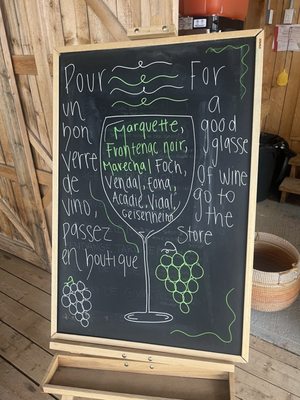 Pour
un
bon
verre
de
vino,
passez
en boutique
Marquette,
Frontenac noir,
Marechal Foch,
Vendal, Eona,
Acadie, Vidal,
Geisenheim
For
a
good
glasse
of wine
go to
the
store